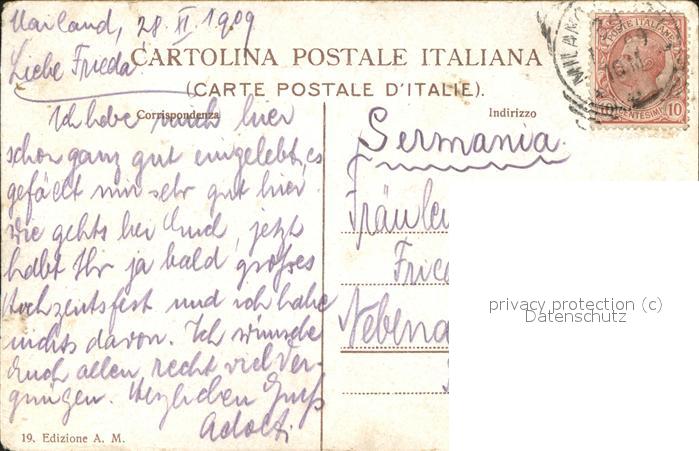 Mailand, 28. II. 1909
CARTOLINA POSTALE ITALIANA
Liebe Frieda
(CARTE POSTALE D'ITALIE).
Corrispondenza
Indirizzo
Ich habe mich hier
schon ganz gut eingelebt, es
gefällt mir sehr gut hier.
Wie gehts bei Euch, jetzt
habt Ihr ja bald großes
Hochzeitsfest und ich habe
nichts davon. Ich wünsche
Euch allen recht viel Ver-
gnügen. Herzlichen Gruß
Adolf.
Germania.
Fräulei
Fried
19. Edizione A. M.
MILANO
POSTE ITALIANE
10
CENTESIMI
privacy protection (c)
Datenschutz